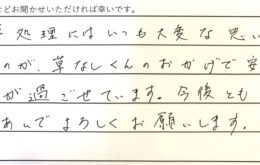 などお聞かせいただければ幸いです。
処理にはいつも大変な思い
のが、草なしくんのおかげで安
が過ごせています。今後とも
あいでよろしくお願いします。